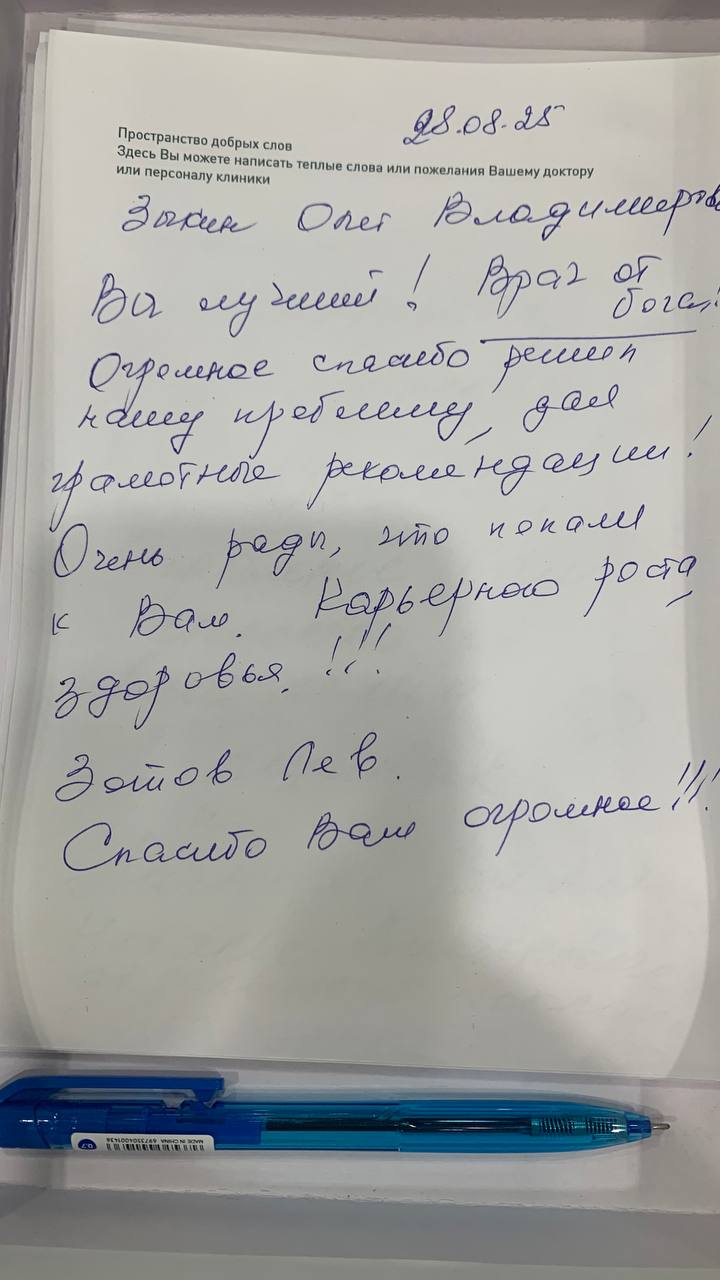 28.08.25
Пространство добрых слов
Здесь Вы можете написать теплые слова или пожелания Вашему доктору
или персоналу клиники
Зыкин Олег Владимиров
Вы лучший! Врач от
бога!
Огромное спасибо решил
нашу проблему, дал
грамотные рекомендации!
Очень рады, что попали
к Вам. Карьерного роста,
здоровья!!!
Зотов Лев.
Спасибо Вам огромное!!!
0.7
MADE IN CHINA 6973304001436